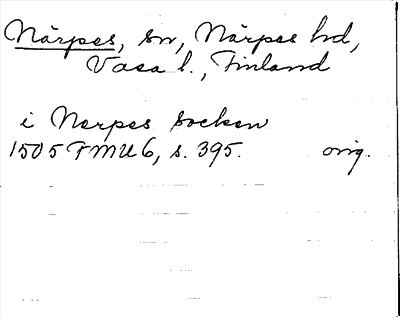 Närpes, sn, Närpes hd,
Vasa l., Finland
i Nerpes socken
1505 FMU 6, s. 395. orig.